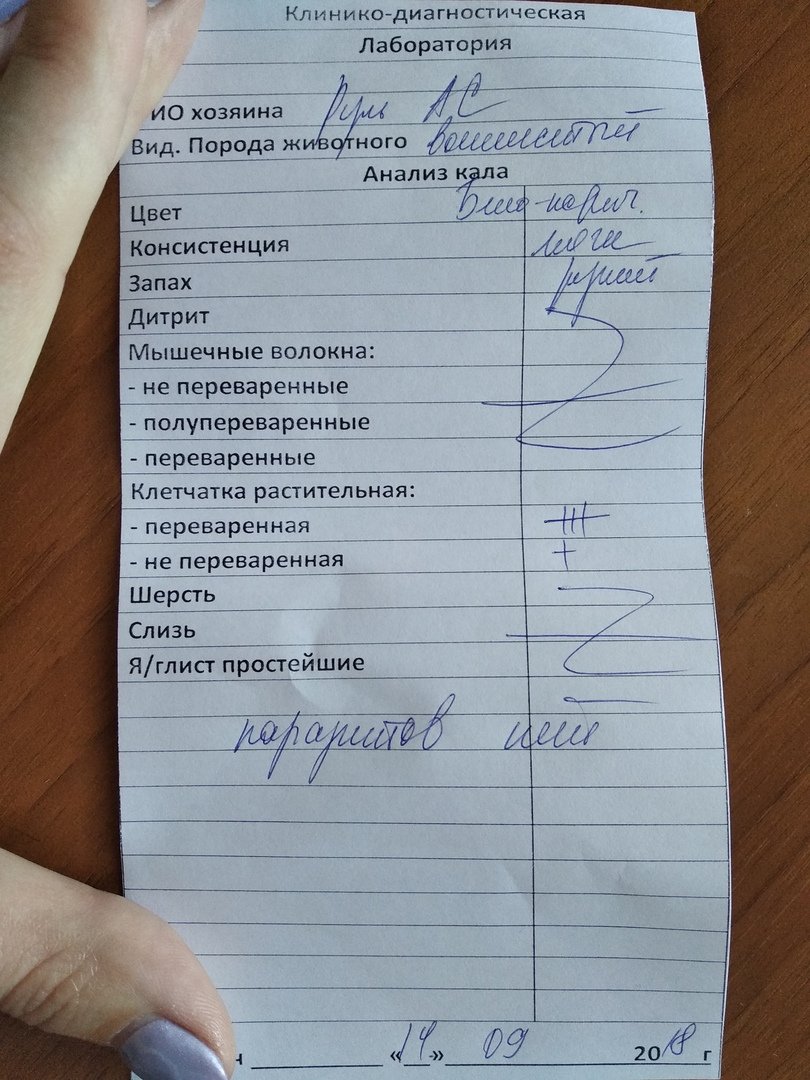 Клинико-диагностическая
Лаборатория
ИО хозяина Руль АС
Вид. Порода животного
Анализ кала
Цвет -корич.
Консистенция
Запах
Дитрит
Мышечные волокна:
- не переваренные
- полупереваренные
- переваренные
Клетчатка растительная:
- переваренная +++
- не переваренная +
Шерсть
Слизь
Я/глист простейшие
паразитов нет
«14» 09 2018 г